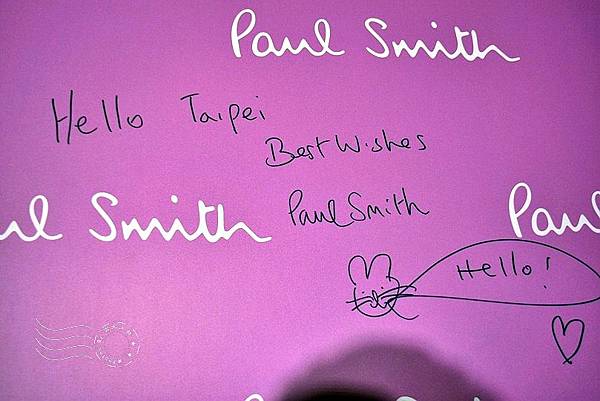 Paul Smith
Hello Taipei
Best Wishes
ul Smith
Paul Smith
Paul
Hello!